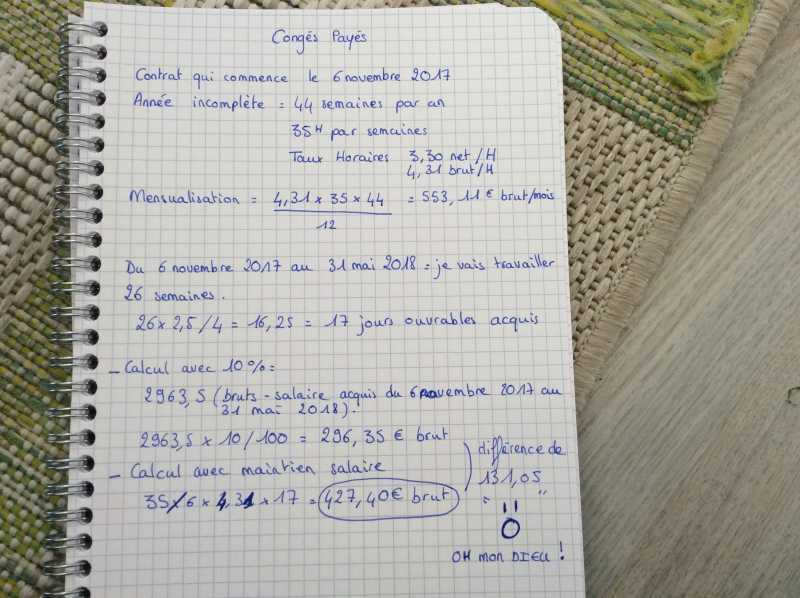 Congés Payés
Contrat qui commence le 6 novembre 2017
Année incomplète = 44 semaines par an
35H par semaines
Taux Horaires 3,30 net/H
4,31 brut/H
Mensualisation = 4,31 × 35 × 44 = 553,11 € brut/mois
12
Du 6 novembre 2017 au 31 mai 2018 = je vais travailler
26 semaines.
26 × 2,5 / 4 = 16,25 = 17 jours ouvrables acquis
- Calcul avec 10% =
2963,5 (bruts - salaire acquis du 6 novembre 2017 au
31 mai 2018).
2963,5 × 10 / 100 = 296,35 € brut
- Calcul avec maintien salaire
35/6 × 4,31 × 17 = 427,40€ brut
différence de
131,05
OH mon DIEU !